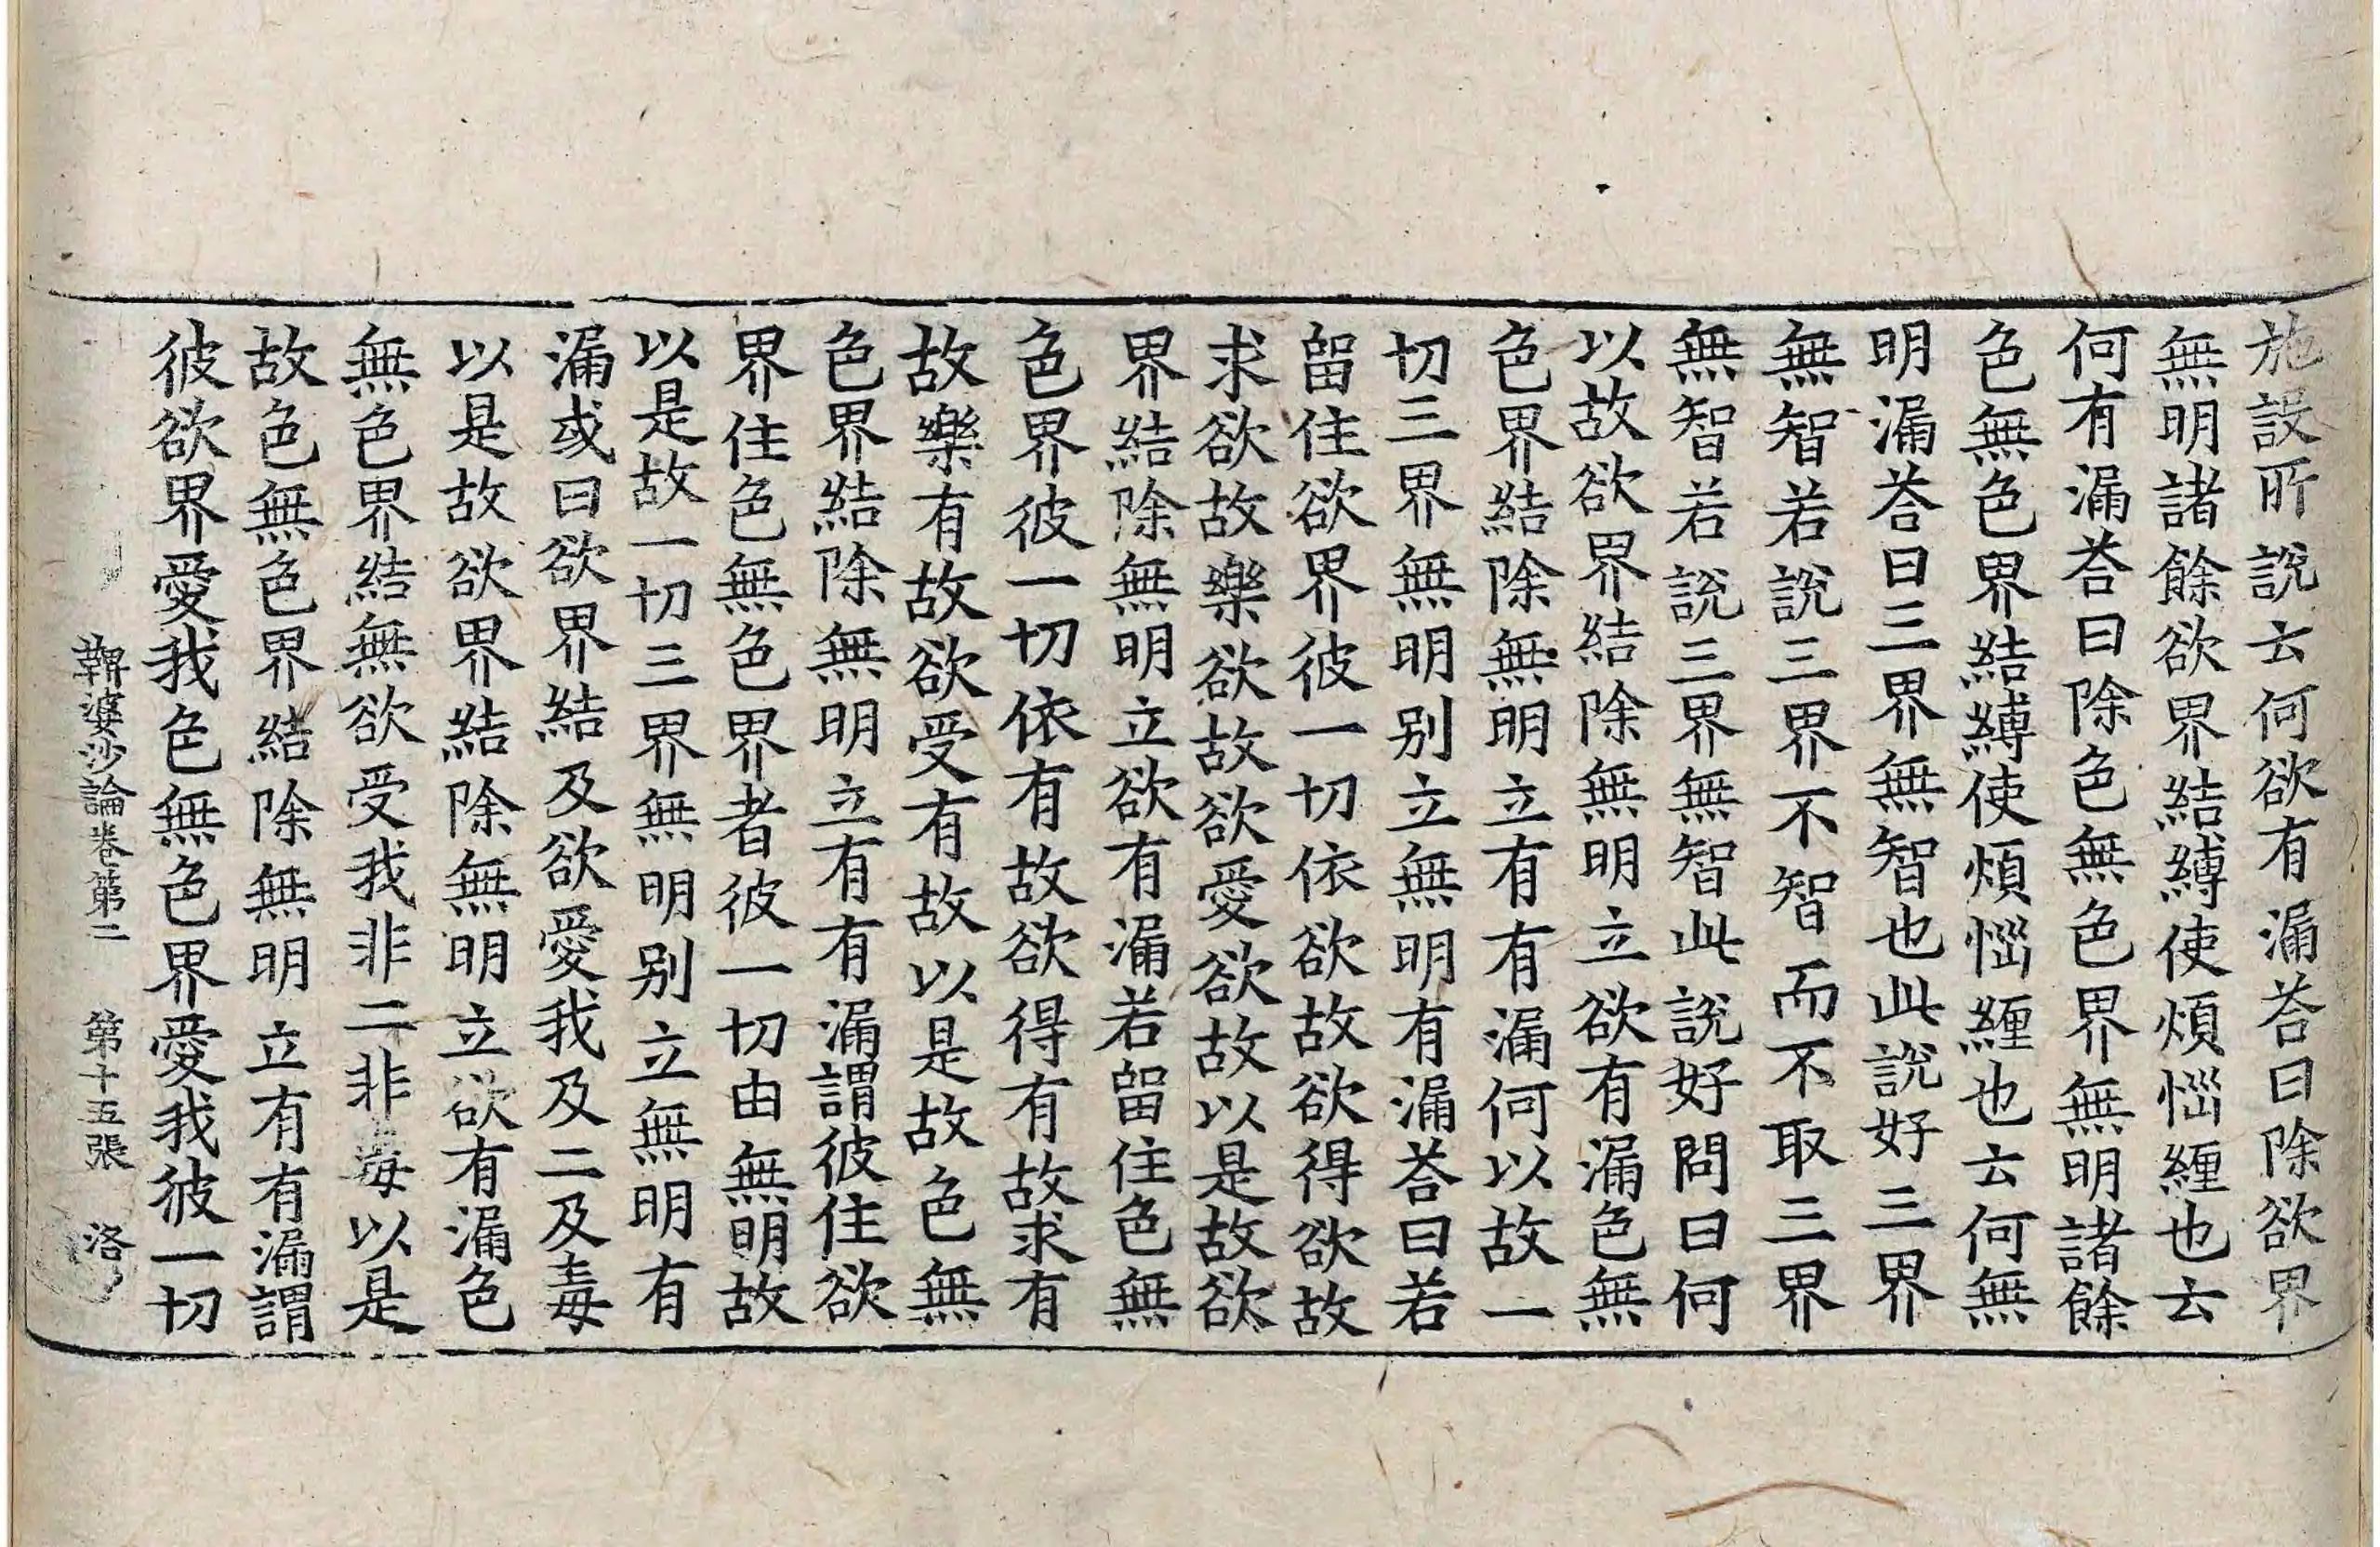 施設所說云何欲有漏荅曰除欲界
無明諸餘欲界結縛使煩惱纏也云
何有漏荅曰除色無色界無明諸餘
色無色界結縛使煩惱纏也云何無
明漏荅曰三界無智也此說好三界
無智若說三界不智而不取三界
無智若說三界無智此說好問曰何
以故欲界結除無明立欲有漏色無
色界結除無明立有有漏何以故一
切三界無明別立無明有漏荅曰若
留住欲界彼一切依欲故欲得欲故
求欲故樂欲故欲愛欲故以是故欲
界結除無明立欲有漏若留住色無
色界彼一切依有故欲得有故求有
故樂有故欲受有故以是故色無
色界結除無明立有有漏謂彼住欲
界住色無色界者彼一切由無明故
以是故一切三界無明別立無明有
漏或曰欲界結及欲愛我及二及毒
以是故欲界結除無明立欲有漏色
無色界結無欲受我非二非毒以是
故色無色界結除無明立有有漏謂
彼欲界愛我色無色界愛我彼一切
鞞婆沙論卷第二 第十五張 洛